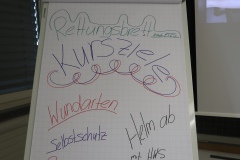 Rettungsbrett
Kursziele
Wundarten
Selbstschutz
Helm ab
mit HWS